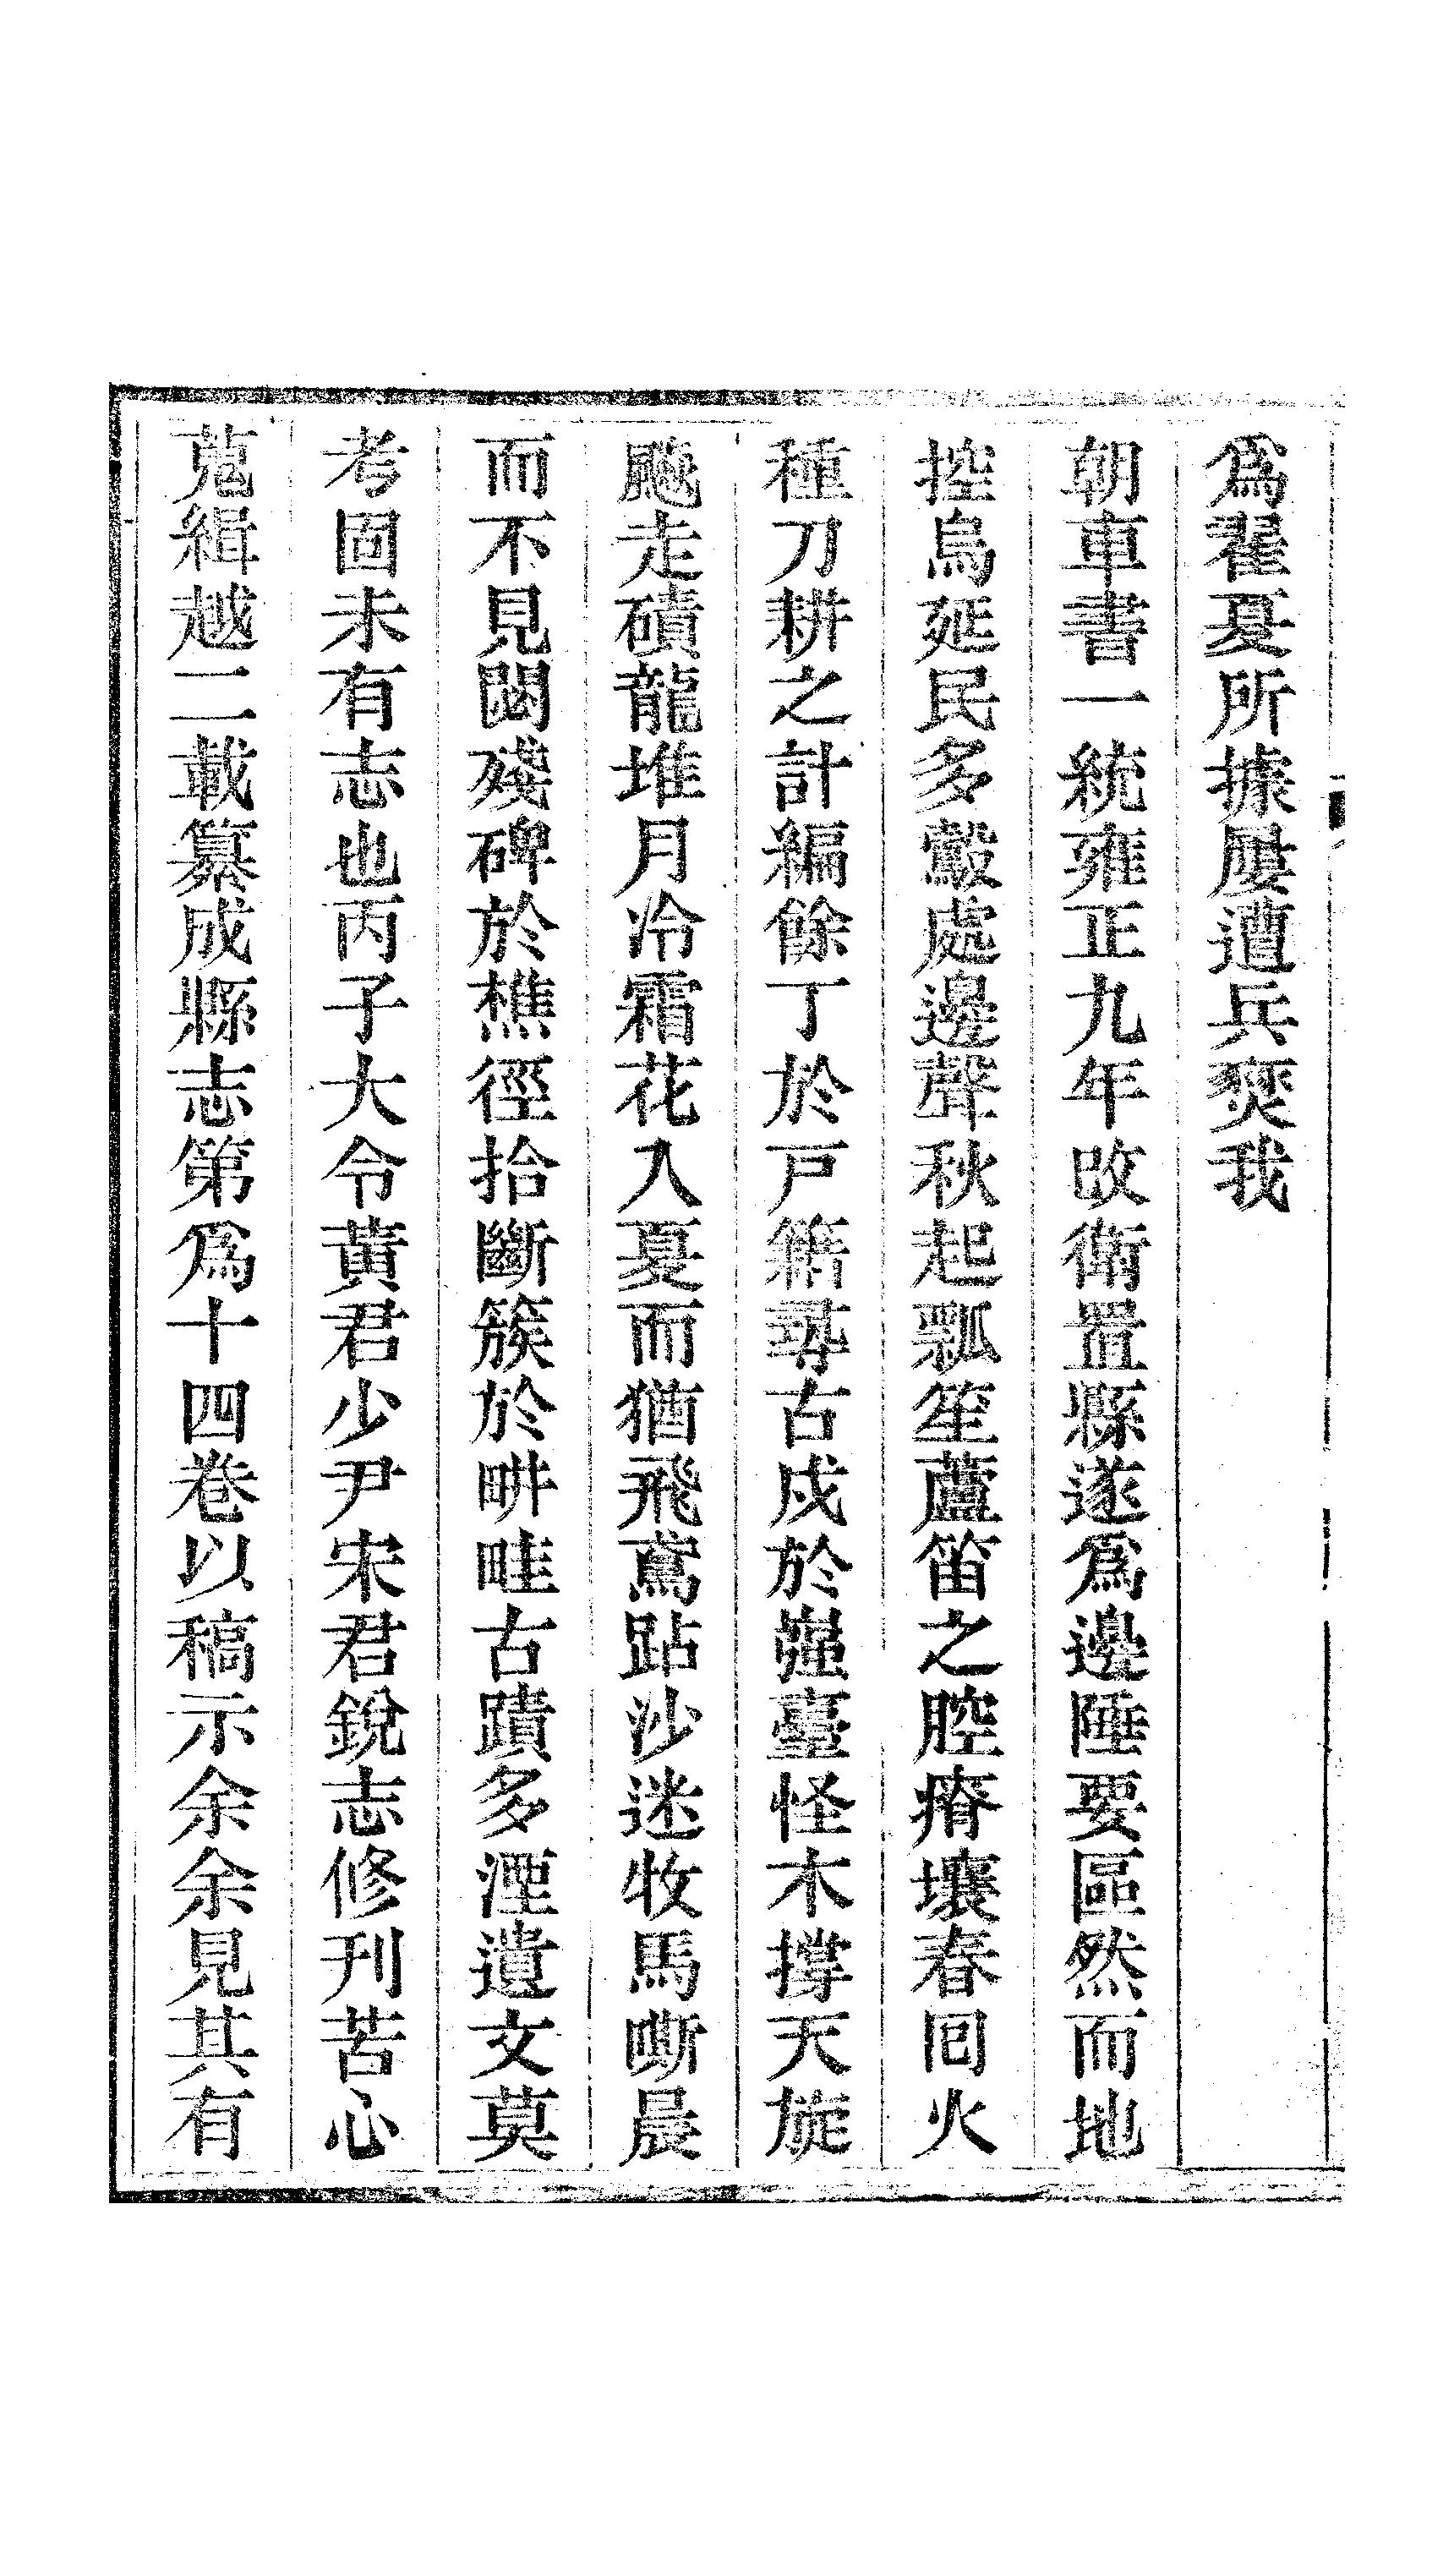 爲翟夏所據屢遭兵燹我
朝車書一統雍正九年改衛置縣遂爲邊陲要區然而地
控烏延民多鷇處邊聲秋起瓢笙蘆笛之腔瘠壤春囘火
種刀耕之計編餘丁於戸籍尋古戍於嶺臺怪木撐天旋
颷走磧龍堆月冷霜花入夏而猶飛鳶跕沙迷牧馬嘶晨
而不見閟殘碑於樵徑拾斷簇於畊畦古蹟多湮遺文莫
考固未有志也丙子大令黃君少尹宋君銳志修刊苦心
蒐緝越二載纂成縣志第爲十四卷以稿示余余見其有